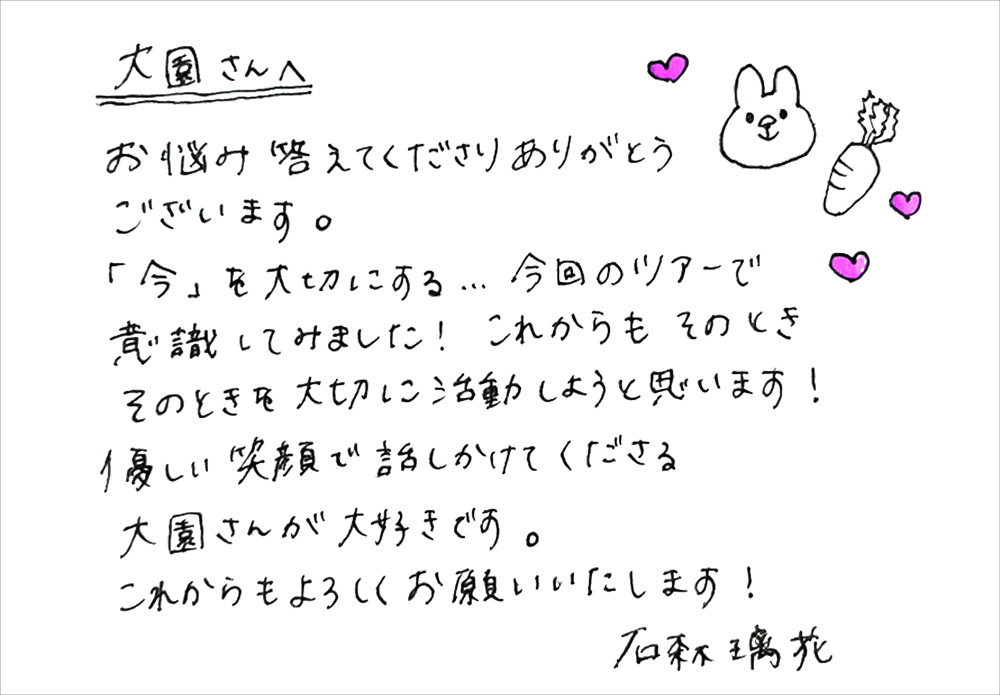 大園さんへ
お悩み答えてくださりありがとう
ございます。
「今」を大切にする… 今回のツアーで
意識してみました! これからもそのとき
そのときを大切に活動しようと思います!
優しい笑顔で話しかけてくださる
大園さんが大好きです。
これからもよろしくお願いいたします!
石森璃花